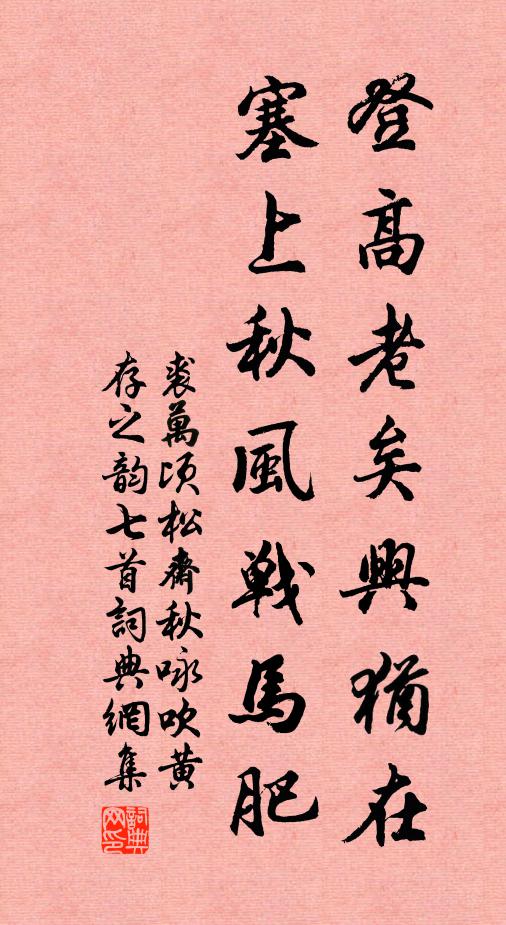 登高老矣興猶在
塞上秋風戦馬肥
裘萬頃松齋秋咏吹黄
存之韵七首詞典網集
詞典网印